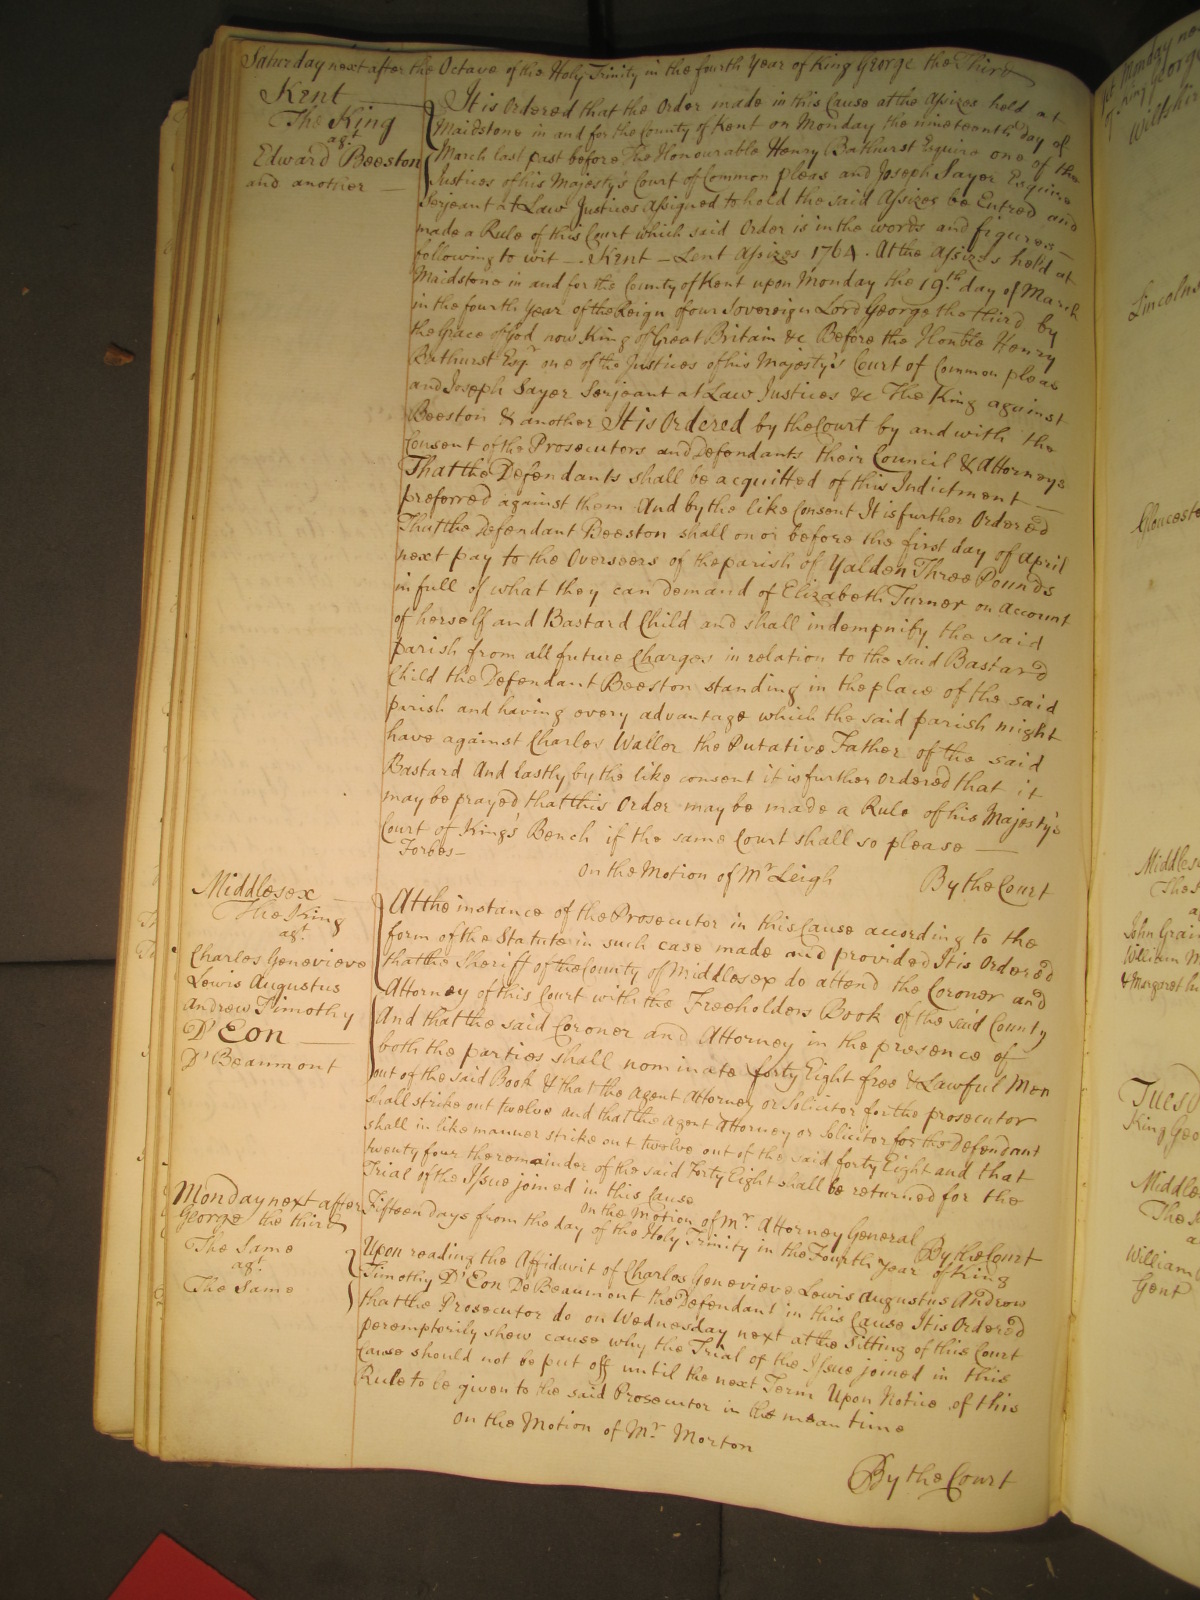 Saturday next after the Octave of the Holy Trinity in the fourth Year of King George the Third
Kent
The King
agt
Edward Beeston
and another
It is Ordered that the Order made in this Cause at the Assizes held at
Maidstone in and for the County of Kent on Monday the nineteenth day of
March last past before The Honourable Henry Bathurst Esquire one of the
Justices of his Majesty's Court of Common pleas and Joseph Sayer Esquire
Serjeant at Law Justices assigned to hold the said Assizes be Entred and
made a Rule of this Court which said Order is in the words and figures
following to wit - Kent - Lent Assizes 1764. At the Assizes held at
Maidstone in and for the County of Kent upon Monday the 19th day of March
in the fourth Year of the Reign of our Sovereign Lord George the third by
the Grace of God now King of Great Britain &c Before the Honble Henry
Bathurst Esqr one of the Justices of his Majesty's Court of Common pleas
and Joseph Sayer Serjeant at Law Justices &c The King against
Beeston & another It is Ordered by the Court by and with the
Consent of the Prosecutors and Defendants their Council & Attorneys
That the Defendants shall be acquitted of this Indictment
preferred against them And by the like Consent It is further Ordered
That the Defendant Beeston shall on or before the first day of April
next pay to the Overseers of the parish of Yalden Three Pounds
in full of what they can demand of Elizabeth Turner on account
of herself and Bastard Child and shall indempnify the said
parish from all future Charges in relation to the said Bastard
Child the Defendant Beeston standing in the place of the said
parish and having every advantage which the said parish might
have against Charles Waller the Putative Father of the said
Bastard And lastly by the like consent it is further ordered that it
may be prayed that this Order may be made a Rule of his Majesty's
Court of King's Bench if the same Court shall so please
Forbes
On the Motion of Mr Leigh By the Court
Middlesex
The King
agt
Charles Genevieve
Lewis Augustus
Andrew Timothy
D'Eon
D'Beaumont
At the instance of the Prosecutor in this Cause according to the
form of the Statute in such case made and provided It is Ordered
that the Sheriff of the County of Middlesex do attend the Coroner and
Attorney of this Court with the Freeholders Book of the said County
And that the said Coroner and Attorney in the presence of
both the parties shall nominate forty Eight free & Lawful Men
out of the said Book & that the Agent Attorney or Solicitor for the prosecutor
shall strike out twelve and that the Agent Attorney or Solicitor for the Defendant
shall in like manner strike out twelve out of the said forty Eight and that
twenty four the remainder of the said Forty Eight shall be returned for the
Trial of the Issue joined in this Cause
On the Motion of Mr. Attorney General By the Court
Monday next after Fifteen days from the day of the Holy Trinity in the Fourth Year of King
George the third
The Same
agt.
The Same
Upon reading the Affidavit of Charles Genevieve Lewis Augustus Andrew
Timothy D'Eon De Beaumont the Defendant in this Cause It is Ordered
that the Prosecutor do on Wednesday next at the Sitting of this Court
peremptorily shew cause why the Trial of the Issue joined in this
Cause should not be put off until the next Term Upon Notice of this
Rule to be given to the said Prosecutor in the mean time
On the Motion of Mr. Morton
By the Court
Wiltshir
Lincolns
Gloucest
Middles
John Grai
William M
Tuesd
King Geo
Middle
William
Gent